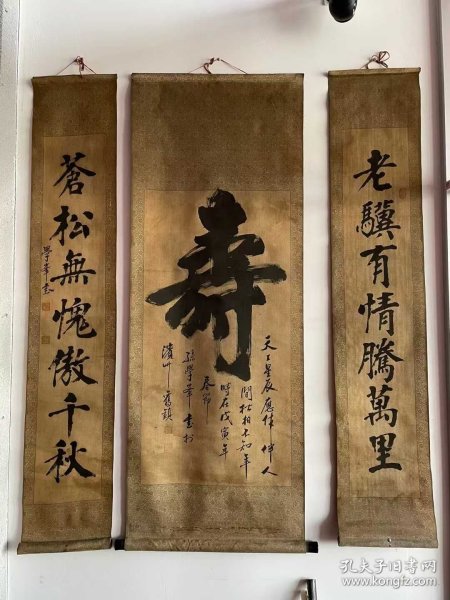 老驥有情騰萬里
壽
天上星辰應作伴人
間松柏不知年
時在戊寅年
春節
孫學峯書於
濱十舊鎮
蒼松無愧傲千秋
學峯書
孔夫子旧书网
www.kongfz.com